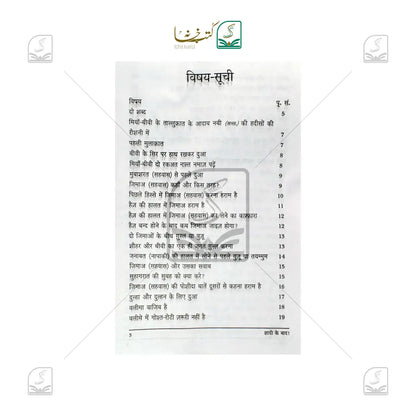 کتب خانہ
विषय-सूची
विषय पृ. सं.
दो शब्द 5
मियाँ-बीवी के ताल्लुक़ात के आदाब नबी (सल्ल.) की हदीसों की
रौशनी में 7
पहली मुलाक़ात 7
बीवी के सिर पर हाथ रखकर दुआ 8
मियाँ-बीवी दो रकअत नफ़्ल नमाज़ पढ़ें 8
मुबाशरत (सहवास) से पहले दुआ 9
जिमाअ (सहवास) कहाँ और किस तरह? 9
पिछले हिस्से में जिमाअ (सहवास) करना हराम है 10
हैज़ की हालत में जिमाअ हराम है 11
हैज़ की हालत में जिमाअ (सहवास) कर लेने का कफ़्फ़ारा 12
हैज़ बन्द होने के बाद कब जिमाअ जाइज़ होगा? 12
दो जिमाओं के बीच ग़ुस्ल या वुज़ू 13
शौहर और बीवी का एक ही जगह ग़ुस्ल करना 13
जनाबत (नापाकी) की हालत में सोने से पहले वुज़ू या तयम्मुम 14
जिमाअ (सहवास) और उसका सवाब 14
सुहागरात की सुबह को क्या करे? 15
जिमाअ (सहवास) की पोशीदा बातें दूसरों से कहना हराम है 16
दुल्हा और दुल्हन के लिए दुआ 17
वलीमा वाजिब है 18
वलीमे में गोश्त-रोटी ज़रूरी नहीं है 19
3 शादी के बाद!